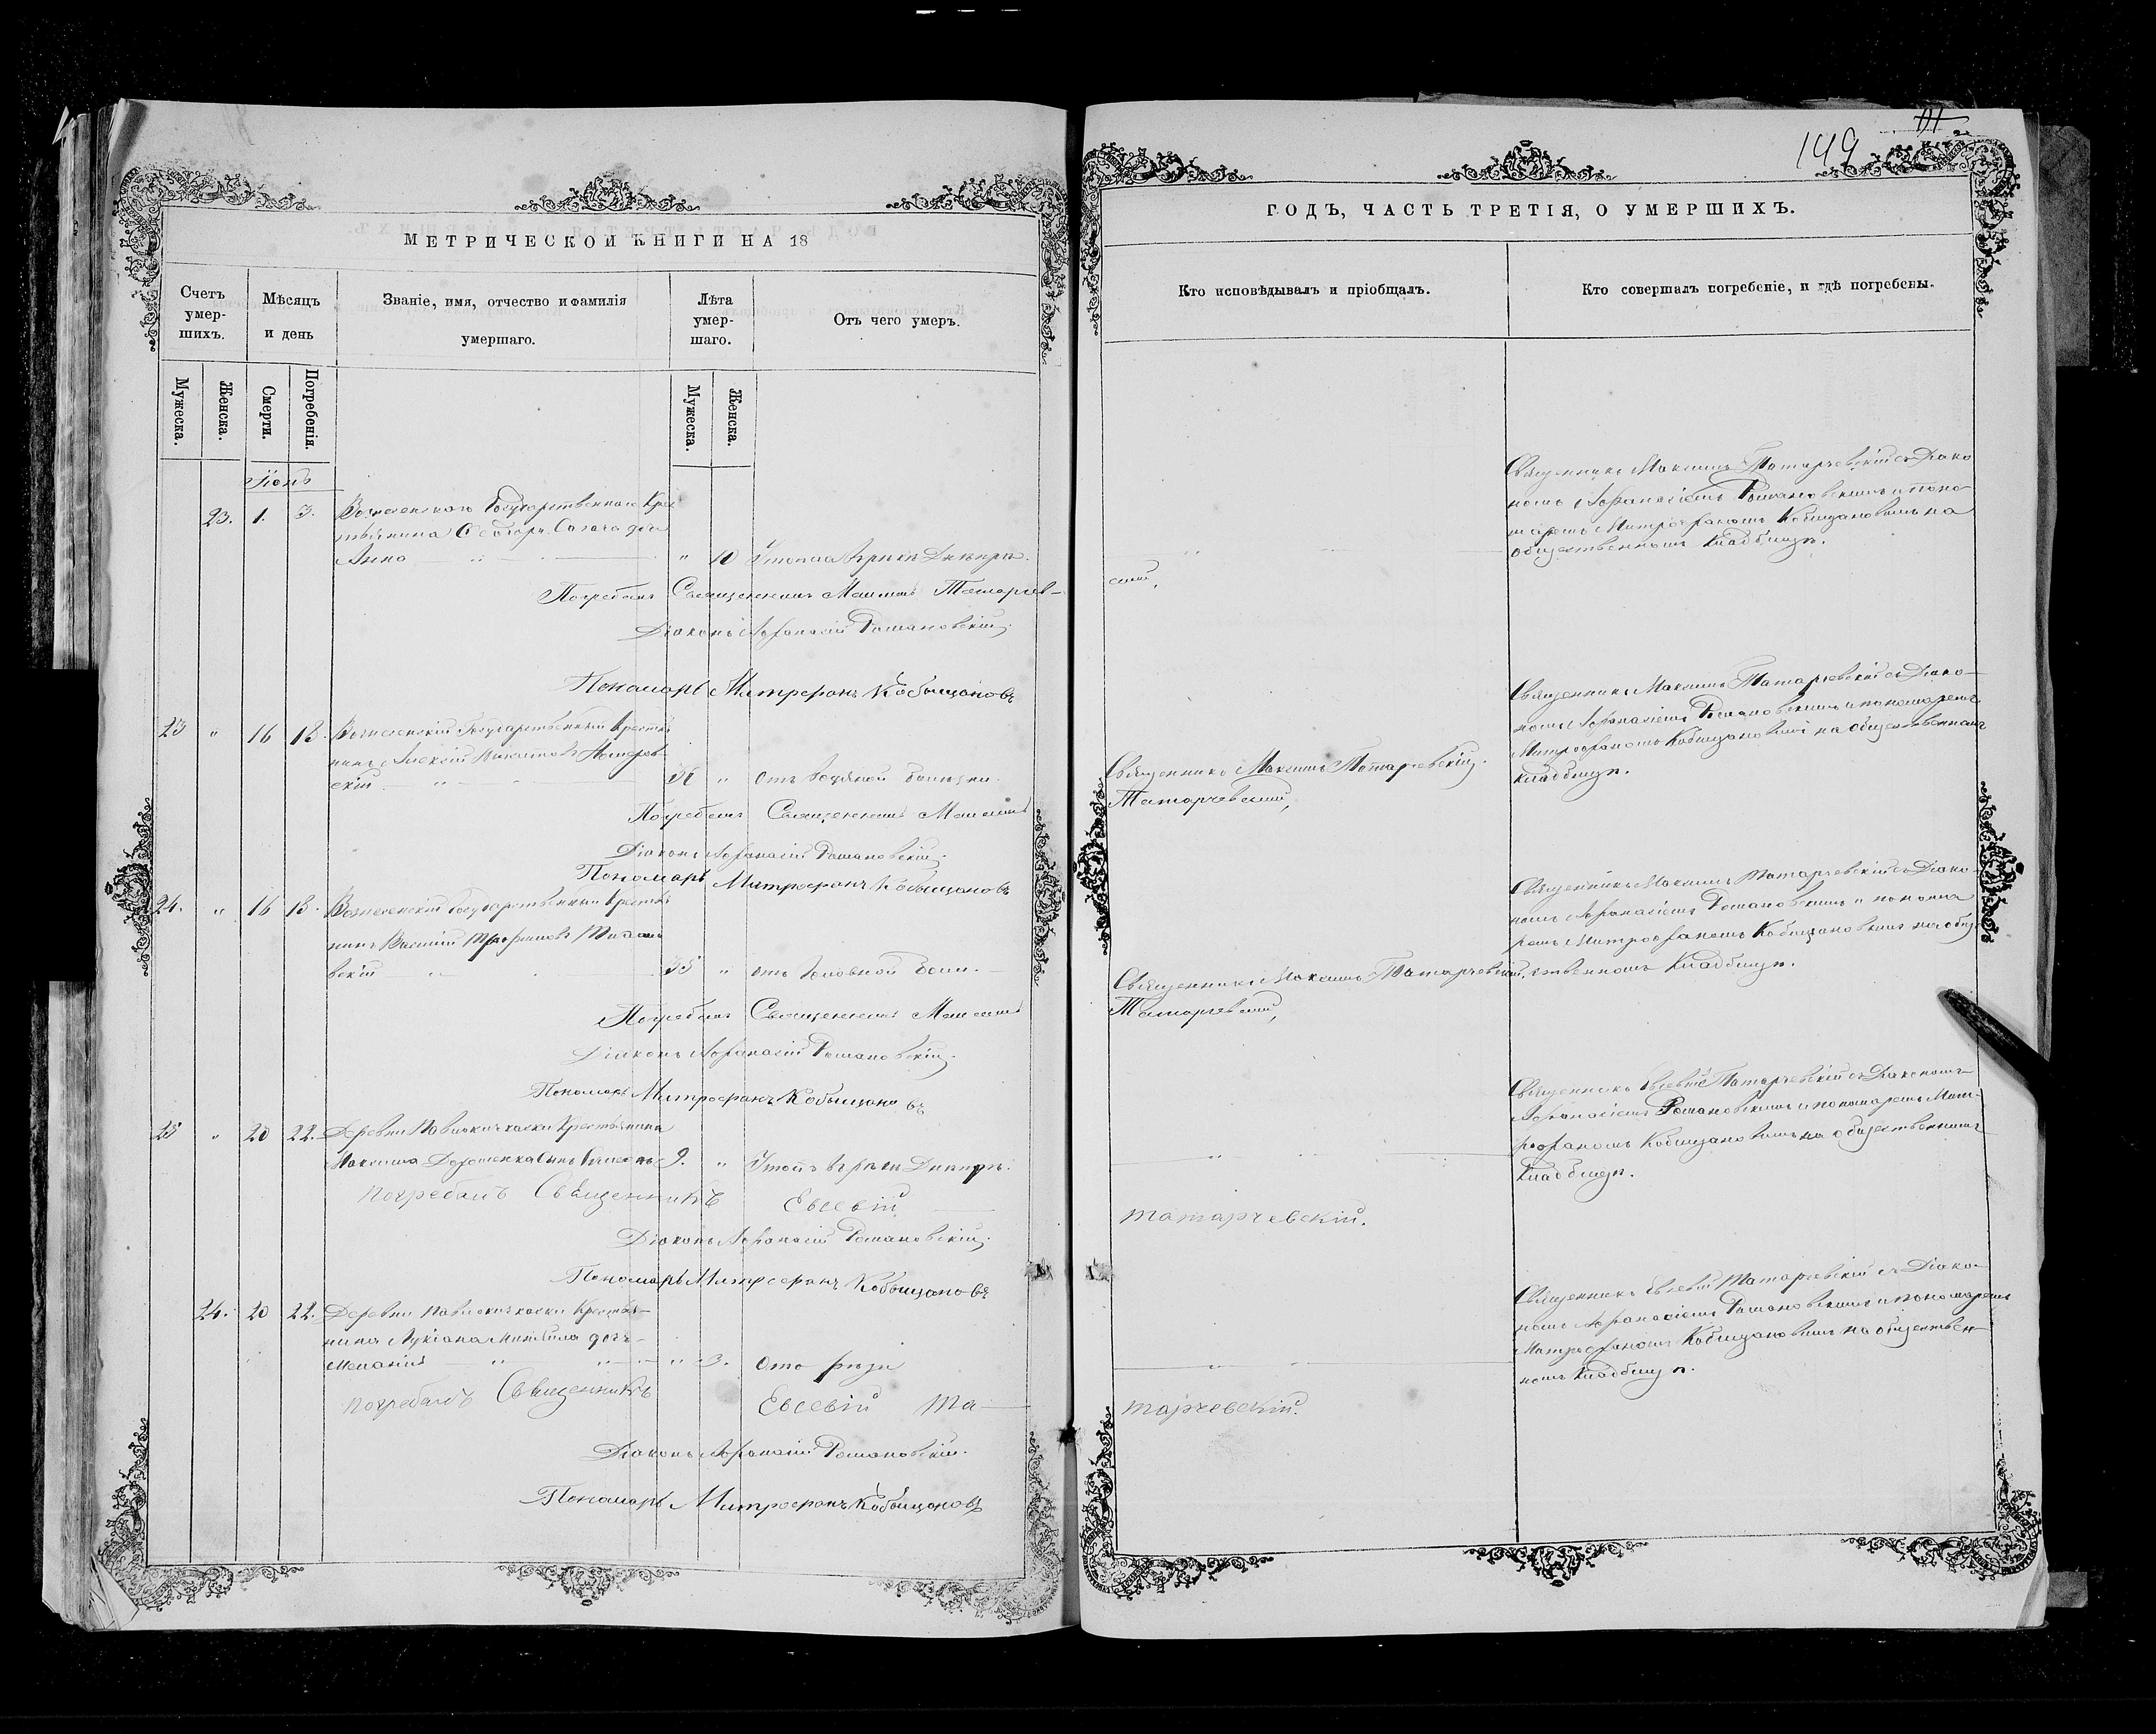 149
МЕТРИЧЕСКОЙ КНИГИ НА 18
Счетъ умер-
шихъ.
Мѣсяцъ
и день
Званіе, имя, отчество и фамилія
умершаго.
Лѣта
умер-
шаго.
Отъ чего умеръ.
Мужеска.
Женска.
Смерти.
Погребенія.
Мужеска
Женска.
Іюнь
23. 1. 3. Вознесенскаго Государственнаго Крес
тьянина Ѳедора дочь
Анна " 10 Утопла Днѣпрѣ.
Погребалъ Священникъ Максимъ Татарчев-
Діаконъ Афанасій Романовскій.
Пономарь Митрофанъ Кобыщановъ
23 " 16 18. Вознесенскій Государственный Крестья
нинъ Алексій
скій " отъ водяной болѣзни.
Погребалъ Священникъ Максимъ
Діаконъ Афанасій Романовскій.
Пономарь Митрофанъ Кобыщановъ
24. " 16 18. Вознесенскій Государственный Крестья
нинъ Василій Трофимовъ
вскій 35 " отъ головной боли.
Погребалъ Священникъ Максимъ
Діаконъ Афанасій Романовскій.
Пономарь Митрофанъ Кобыщановъ
25 " 20 22. Деревни Крестьянина
Максима сынъ 9. " Днѣпръ.
погребалъ Священникъ Евсевій
Діаконъ Афанасій Романовскій.
Пономарь Митрофанъ Кобыщановъ
24. 20 22. Деревни Крестья-
нина Лукіана дочь
Меланія " 3. отъ
погребалъ Священникъ Евсевій Та-
Діаконъ Афанасій Романовскій.
Пономарь Митрофанъ Кобыщановъ
ГОДЪ, ЧАСТЬ ТРЕТІЯ, О УМЕРШИХЪ.
Кто исповѣдывалъ и пріобщалъ.
Кто совершалъ погребеніе, и гдѣ погребены.
Священникъ Максимъ Татарчевскій съ Діако
номъ Афанасіемъ Романовскимъ и поно
маремъ Митрофаномъ Кобыщановымъ на
общественномъ кладбищѣ.
скій,
Священникъ Максимъ Татарчевскій съ Діако-
номъ Афанасіемъ Романовскимъ и пономаремъ
Митрофаномъ Кобыщановымъ на общественномъ
кладбищѣ.
Священникъ Максимъ Татарчевскій.
Татарчевскій,
Священникъ Максимъ Татарчевскій съ Діако-
номъ Афанасіемъ Романовскимъ и понома
ремъ Митрофаномъ Кобыщановымъ на общ
ственномъ Кладбищѣ.
Священникъ Максимъ Татарчевскій.
Татарчевскій,
Священникъ Евсевій Татарчевскій съ Діакономъ
Афанасіемъ Романовскимъ и пономаремъ Мит-
рофаномъ Кобыщановымъ на общественномъ
Кладбищѣ.
татарчевскій.
Священникъ Евсевій Татарчевскій съ Діако-
номъ Афанасіемъ Романовскимъ и пономаремъ
Митрофаномъ Кобыщановымъ на обществен-
номъ Кладбищѣ.
тарчевскій.